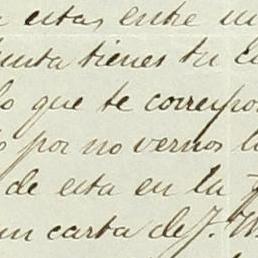 estas entre
tienes tu
lo que te correspo
por no vernos l
de esta en la
un carta de J.